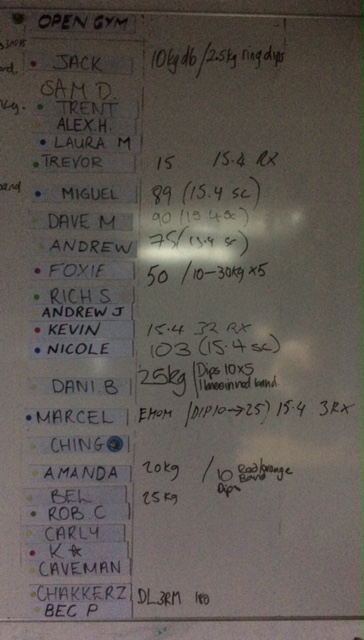 OPEN GYM
JACK 10kg db /2.5kg ring dips
SAM D.
TRENT
ALEX.H.
LAURA M
TREVOR 15 15.4 RX
MIGUEL 89 (15.4 sc)
DAVE M 90 (15.4sc)
ANDREW 75 (15.4 sc)
FOXIE 50 /10-30kg x5
RICH S
ANDREW J
KEVIN 15.4 32 RX
NICOLE 103 (15.4 sc)
DANI B 25kg /Dips 10x5
band
MARCEL EMOM (DIP10→25) 15.4 3RX
CHING
AMANDA 20kg / 10 Red/orange
Band
Dips
BEL 25kg
ROB C
CARLY
K☆
CAVEMAN
CHAKKERZ DL 3RM 180
BEC P